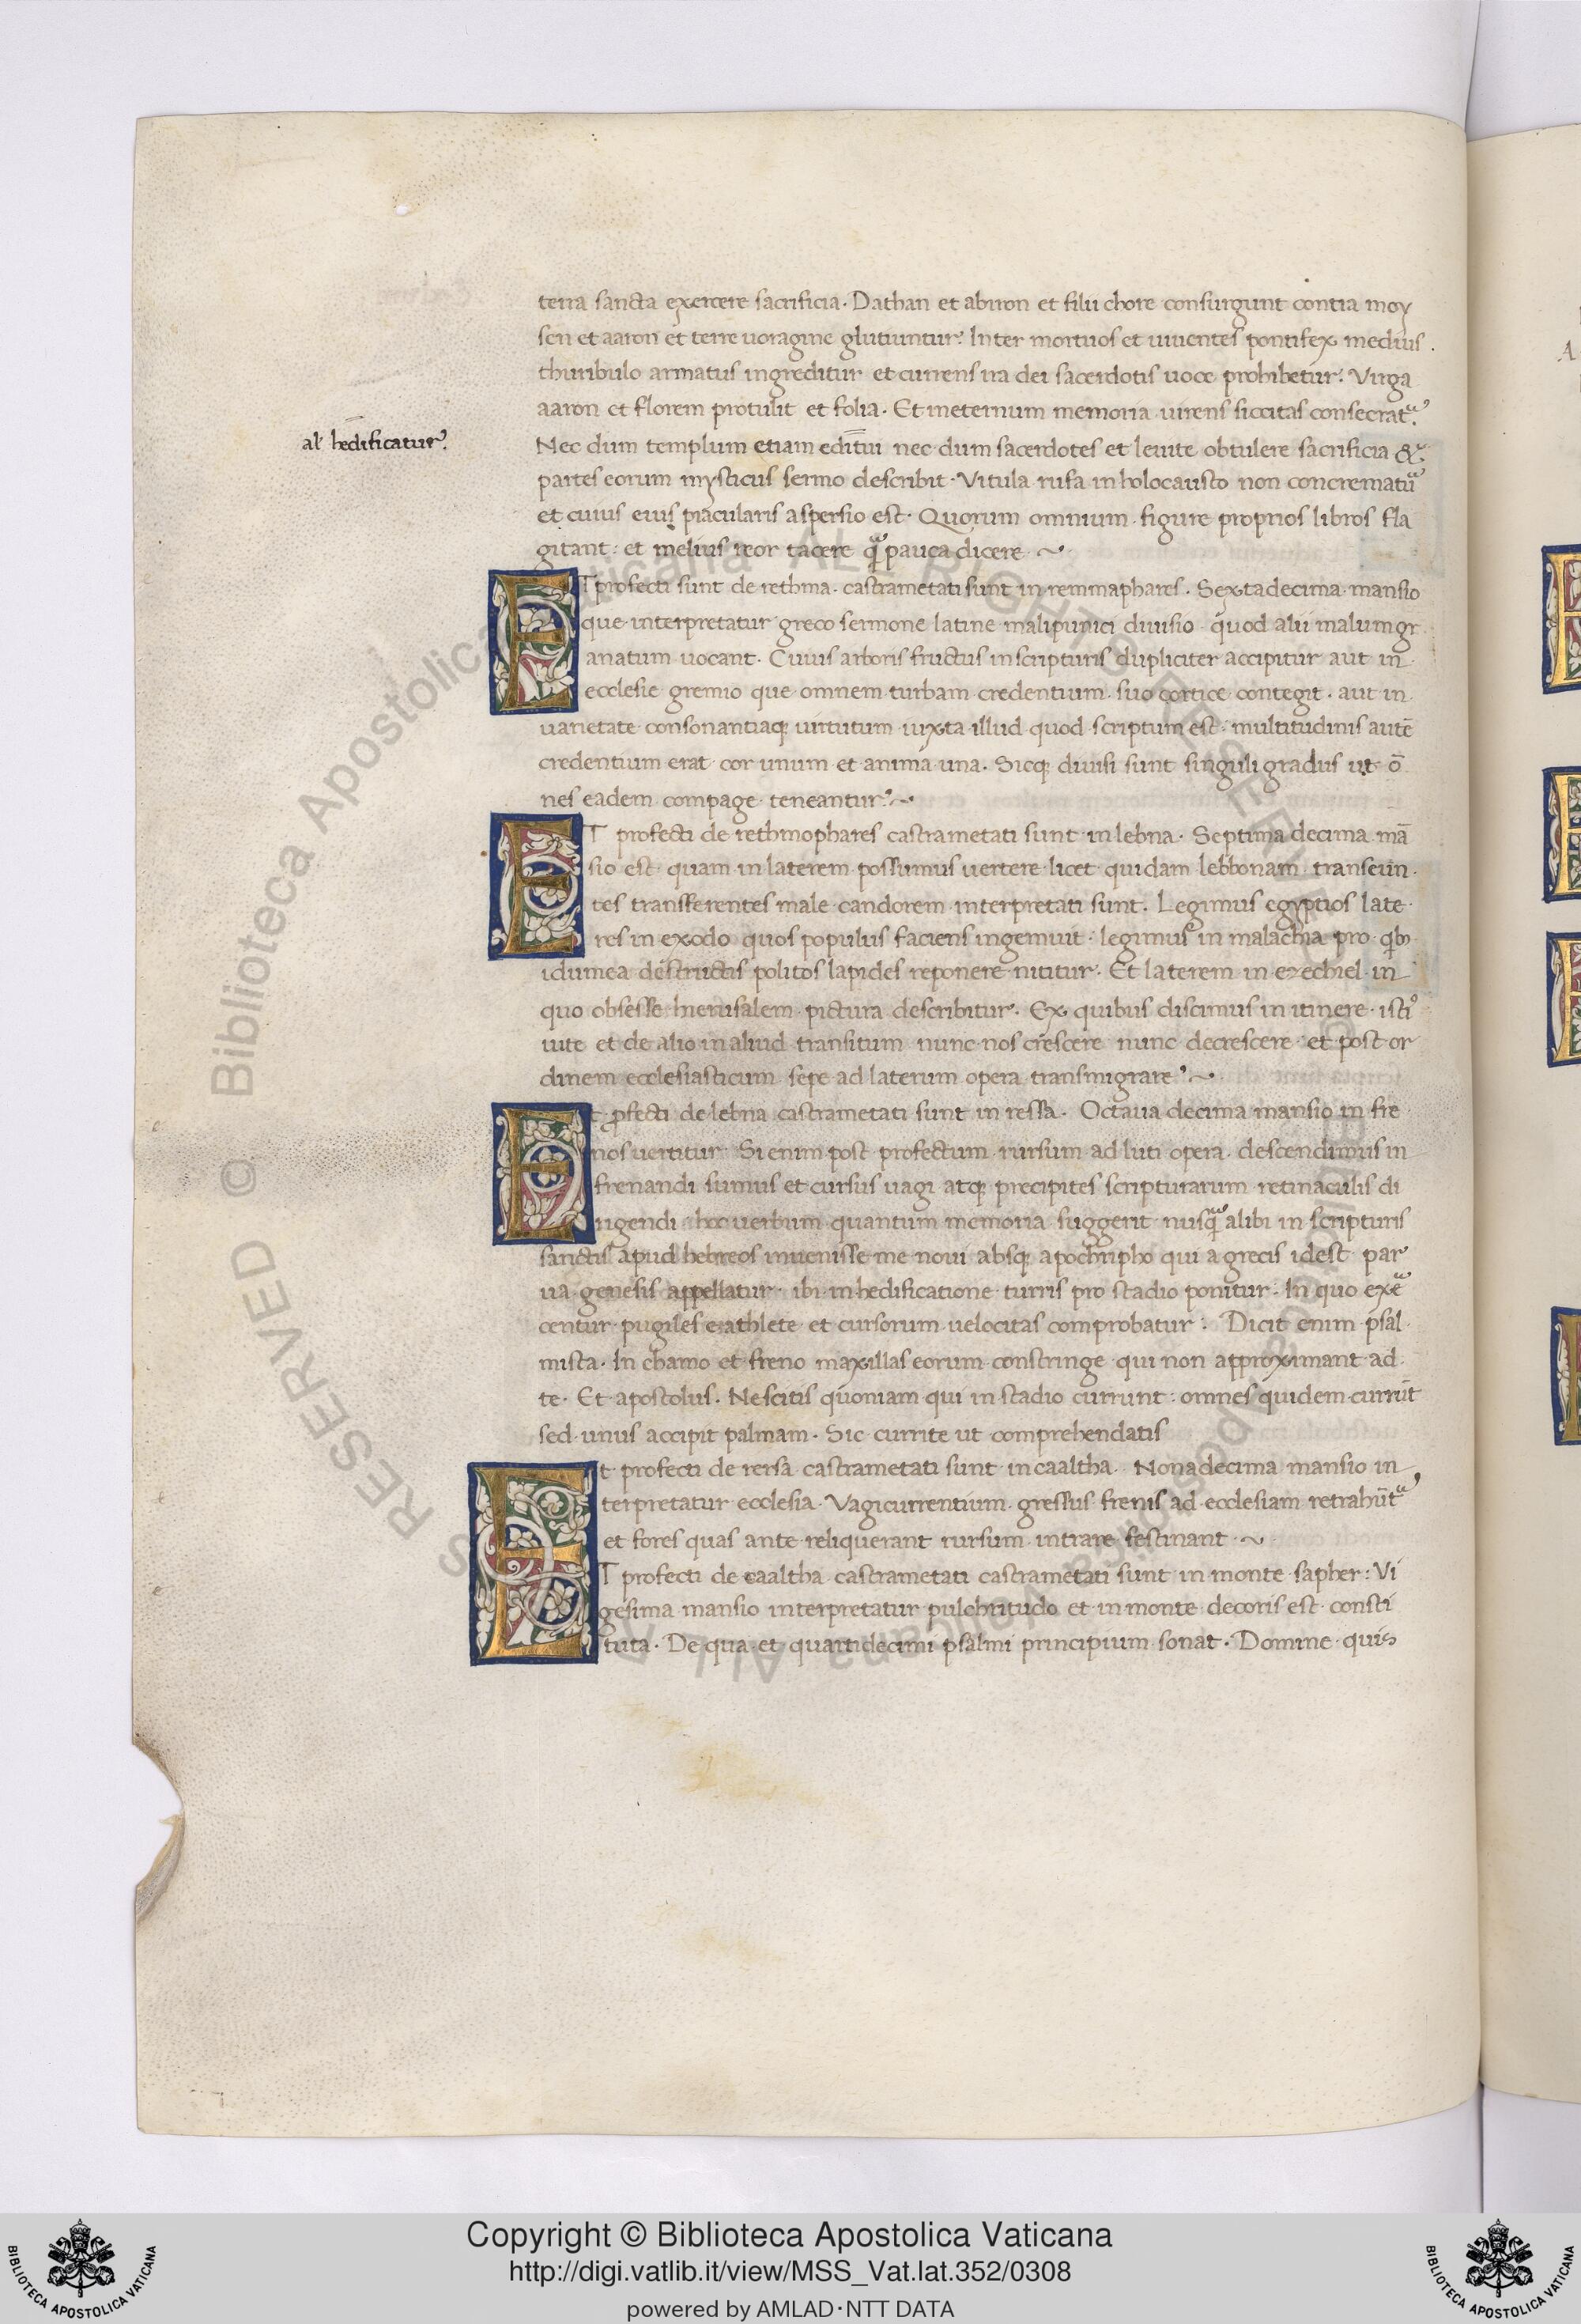 terra sancta exercere sacrificia. Dathan et abiron et filii chore consurgunt contra moy
sen et aaron et terre uoragine glutiuntur. Inter mortuos et uiuentes pontifex medius.
thuribulo armatus ingreditur et currens ira dei sacerdotis uoce prohibetur. Virga
aaron et florem protulit et folia. Et in eternum memoria uirens siccitas consecrat.
al' hedificatur.
Nec dum templum etiam nec dum sacerdotes et leuite obtulere sacrificia &
partes eorum mysticus sermo describit. Vitula rufa in holocausto non
et cuius eius piacularis aspersio est. Quorum omnium figure proprios libros fla
gitant: et melius reor tacere pauca dicere ~
ET profecti sunt de rethma. castrametati sunt in remmaphares. Sexta decima mansio
que interpretatur greco sermone latine mali punici diuisio quod alii malum gr
anatum uocant. Cuius arboris fructus in scripturis dupliciter accipitur aut in
ecclesie gremio que omnem turbam credentium suo cortice contegit. aut in
uarietate consonantiaq; uirtutum iuxta illud quod scriptum est. multitudinis autē
credentium erat cor unum et anima una. Sicq; diuisi sunt singuli gradus ut ō
nes eadem compage teneantur. ~
ET profecti de rethmophares castrametati sunt in lebna. Septima decima mā
sio est quam in laterem possumus uertere licet quidam lebbonam transeun
tes transferentes male candorem interpretati sunt. Legimus egyptios late
res in exodo quos populus faciens ingemuit. legimus in malachia pro qb;
idumea destructis politos lapides reponere nititur. Et laterem in ezechiel in
quo obsesse hierusalem pictura describitur. Ex quibus discimus in itinere isti⁹
uite et de alio in aliud transitum nunc nos crescere nunc decrescere et post or
dinem ecclesiasticum sepe ad laterum opera transmigrare. ~
Et ꝓfecti de lebna castrametati sunt in ressa. Octaua decima mansio in fre
nos uertitur. Si enim post profectum rursum ad luti opera descendimus in
frenandi sumus et cursus uagi atq; precipites scripturarum retinaculis di
rigendi hoc uerbum quantum memoria suggerit alibi in scripturis
sanctis apud hebreos inuenisse me noui absq; apochripho qui a grecis idest par
ua genesis appellatur. ibi in hedificatione turris pro stadio ponitur. In quo exer
centur pugiles et athlete et cursorum uelocitas comprobatur. Dicit enim psal
mista. In chamo et freno maxillas eorum constringe qui non approximant ad
te. Et apostolus. Nescitis quoniam qui in stadio currunt: omnes quidem currūt
sed unus accipit palmam. Sic currite ut comprehendatis
Et profecti de rersa castrametati sunt in caaltha. Nona decima mansio in
terpretatur ecclesia. Vagi currentium gressus frenis ad ecclesiam retrahūt
et fores quas ante reliquerant rursum intrare festinant ~
ET profecti de caaltha castrametati castrametati sunt in monte sapher: Vi
gesima mansio interpretatur pulchritudo et in monte decoris est consti
tuta. De qua et quartidecimi psalmi principium sonat. Domine quis
Copyright © Biblioteca Apostolica Vaticana
http://digi.vatlib.it/view/MSS_Vat.lat.352/0308
powered by AMLAD·NTT DATA
BIBLIOTECA APOSTOLICA VATICANA
BIBLIOTECA APOSTOLICA VATICANA